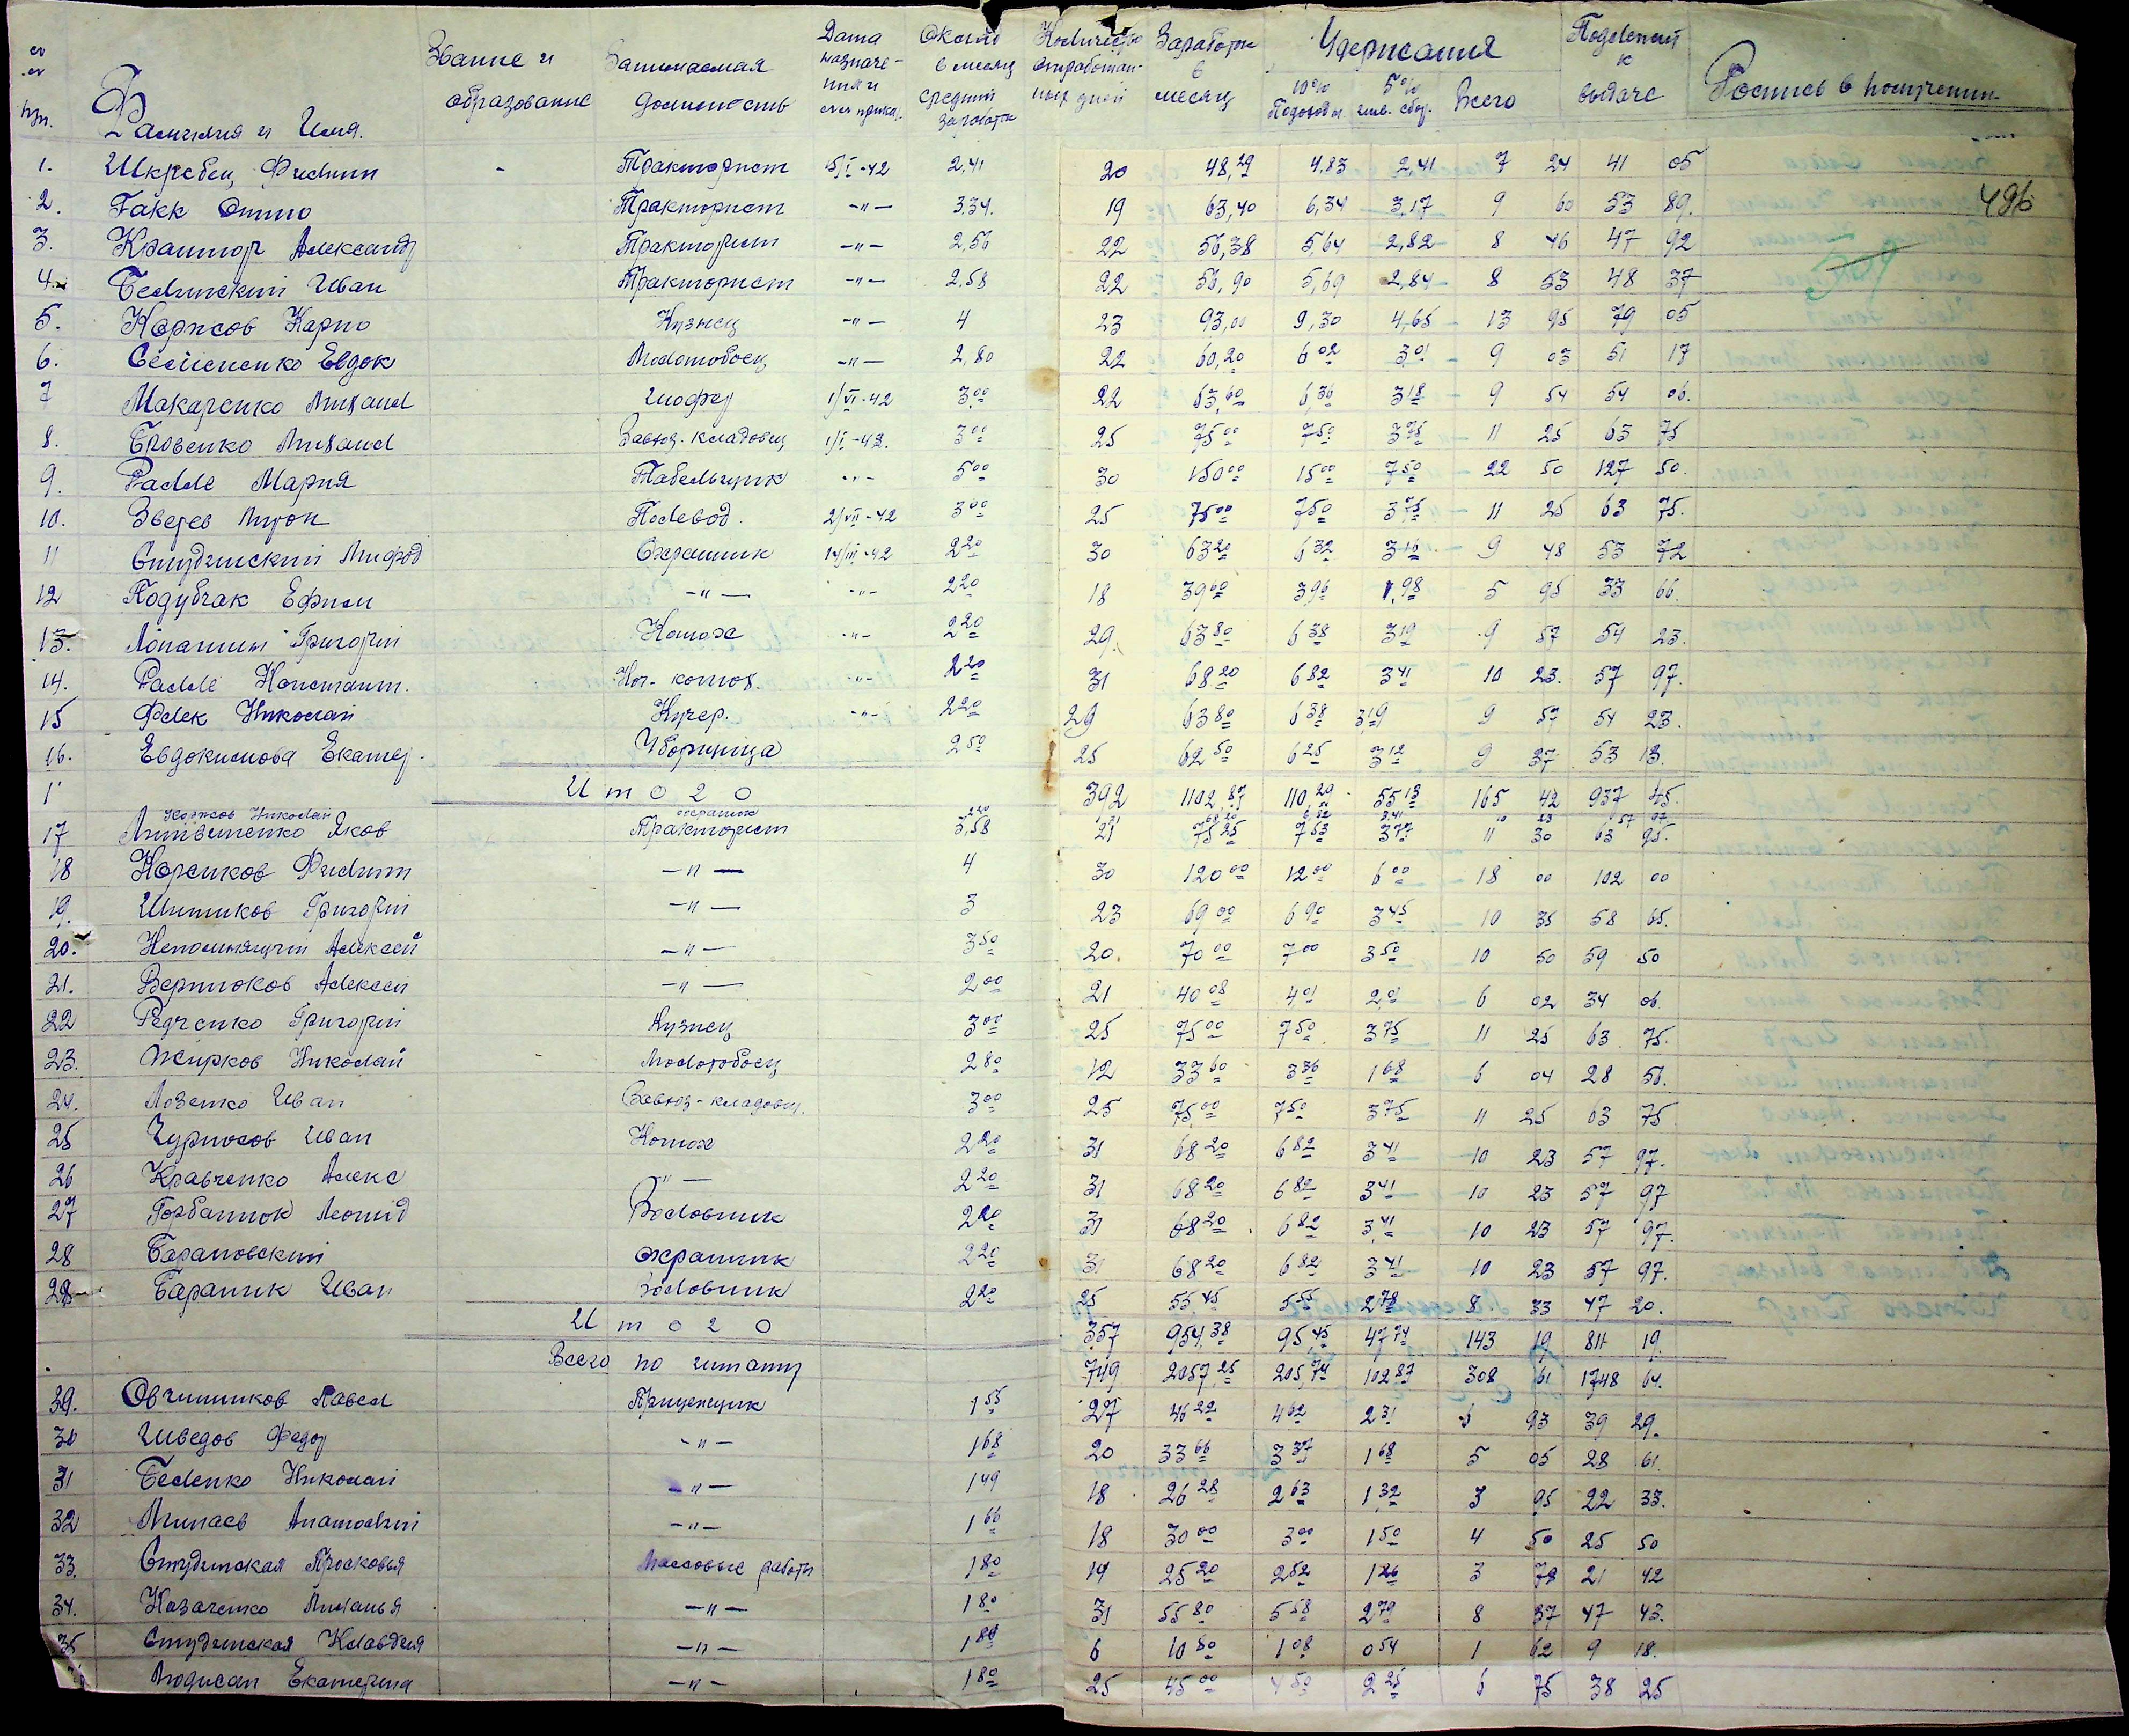 №№ п/п. Фамилия и Имя. Звание и образование Занимаемая должность Дата назначения Оклад в месяц средний заработок Количество отработанных дней Заработок в месяц Удержания 10% Подоходн. 5% Всего Подлежит к выдаче Роспись в получении
1. Шкребец Филипп - Тракторист 15/I-42 2,41 20 48,29 4,83 2,41 7 24 41 05
2. Гакк Отто Тракторист -"- 3,34. 19 63,40 6,34 3,17 9 60 53 89. 496
3. Крантор Александр Тракторист -"- 2,56 22 56,38 5,64 2,82 8 46 47 92
4. Белинский Иван Тракторист -"- 2,58 22 56,90 5,69 2,84 8 53 48 37
5. Норисов Карпо Кузнец -"- 4 23 93,00 9,30 4,65 13 95 79 05
6. Семененко Евдок Молотобоец -"- 2,80 22 60,20 6 02 3 01 9 03 51 17
7 Макаренко Михаил Шофер 1/VI-42 3 00 22 63,60 6,36 3 18 9 54 54 06.
8. Бровенко Михаил Завхоз-кладовщ 1/I-42. 3 00 25 75 00 7 50 3 75 11 25 63 75
9. Радле Мария Табельщик -"- 5 00 30 150 00 15 00 7 50 22 50 127 50.
10. Зверев Мирон Полевод. 2/VII-42 3 00 25 75 00 7 50 3 75 11 25 63 75.
11 Студзинский Мифод Охранник 14/III-42 2 20 30 63 20 6 32 3 16 9 48 53 72
12 Подубчак Ефим -"- -"- 2 20 18 39 60 3 96 1,98 5 95 33 66.
13. Лопатин Григорий Конюх -"- 2 20 29. 63 80 6 38 3 19 9 57 54 23.
14. Радле Констант. Ноч. конюх. -"- 2 20 31 68 20 6 82 3 41 10 23. 57 97.
15 Флек Николай Кучер. -"- 2 20 29 63 80 6 38 3 19 9 57 54 23.
16. Евдокимова Екатер. Уборщица 2 50 25 62 50 6 25 3 12 9 37 53 13.
Итого 392 1102,87 110,29 55 13 165 42 937 45.
Корисов Николай охранник 2 20 31 68 20 6 82 3 41 10 23 57 97
17 Литвиненко Яков Тракторист 3,58 21 75 25 7 53 3 77 11 30 63 95.
18 Корсиков Филипп -"- 4 30 120 00 12 00 6 00 18 00 102 00
19. Шитиков Григорий -"- 3 23 69 00 6 90 3 45 10 35 58 65.
20. Непомнящий Алексей -"- 3 50 20. 70 00 7 00 3 50 10 50 59 50
21. Вертюков Алексей -"- 2 00 21 40 08 4 01 2 01 6 02 34 06.
22 Редченко Григорий Кузнец 3 00 25 75 00 7 50 3 75 11 25 63 75.
23. Жирков Николай Молотобоец 2 80 12 33 60 3 36 1 68 6 04 28 56.
24. Лозенко Иван Завхоз-кладовщ. 3 00 25 75 00 7 50 3 75 11 25 63 75
25 Чурносов Иван Конюх 2 20 31 68 20 6 82 3 41 10 23 57 97.
26 Кравченко Алекс -"- 2 20 31 68 20 6 82 3 41 10 23 57 97
27 Горбатюк Леонид Воловник 2 20 31 68 20 6 82 3,41 10 23 57 97.
28 Барановский охранник 2 20 31 68 20 6 82 3 41 10 23 57 97.
28 Бараник Иван Воловник 2 20 25 55,45 5 55 2 78 8 33 47 20.
Итого 357 954,38 95,45 47 74 143 19 811 19.
Всего по штату 749 2057,25 205,74 102 87 308 61 1748 64.
29. Овчинников Павел Прицепщик 1 55 27 46 22 4 62 2 31 6 93 39 29.
30 Шведов Федор -"- 1 68 20 33 66 3 37 1 68 5 05 28 61.
31 Беленко Николай -"- 1 49 18 26 28 2 63 1,32 3 95 22 33.
32 Минаев Анатолий -"- 1 66 18 30 00 3 00 1 50 4 50 25 50
33. Студзинская Прасковья Массовые работы 1 80 14 25 20 2 52 1 26 3 78 21 42
34. Казаченко Миланья -"- 1 80 31 55 80 5 58 2 79 8 37 47 43.
35 Студзинская Клавдия -"- 1 80 6 10 80 1 08 0 54 1 62 9 18.
Модисан Екатерина -"- 1 80 25 45 00 4 50 2 25 6 75 38 25